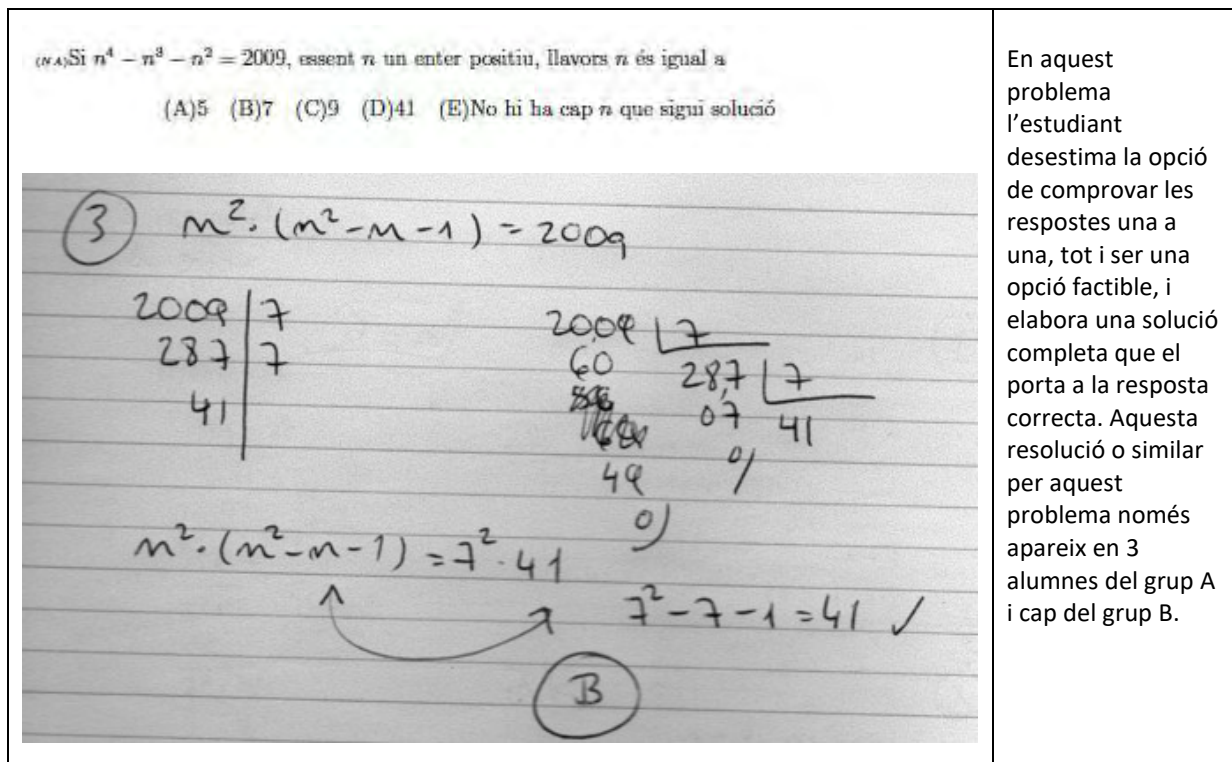 (NA)Si n⁴ − n³ − n² = 2009, essent n un enter positiu, llavors n és igual a
(A)5 (B)7 (C)9 (D)41 (E)No hi ha cap n que sigui solució
3 n²·(n²-n-1) = 2009
2009 | 7
287 | 7
41
2009 | 7
60 287 | 7
07 41
49 0/
0)
n²·(n²-n-1) = 7²·41
7²-7-1=41 ✓
B
En aquest
problema
l'estudiant
desestima la opció
de comprovar les
respostes una a
una, tot i ser una
opció factible, i
elabora una solució
completa que el
porta a la resposta
correcta. Aquesta
resolució o similar
per aquest
problema només
apareix en 3
alumnes del grup A
i cap del grup B.